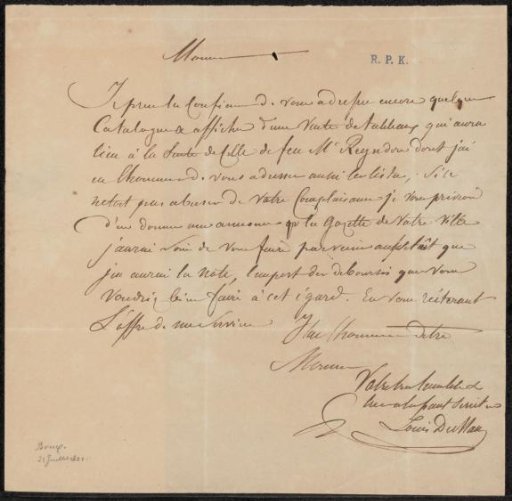 Monsieur
R. P. K.
Je prens la Confiance de vous adresser encore quelques
Catalogues & affiches d'une Vente de tableaux qui aura
lieu à la Suite de Celle de feu Mr dont j'ai
eu l'honneur de vous adresser aussi les listes, Si ce
n'etoit pas abuser de Votre Complaisance je Vous prierois
d'en donner une annonce la Gazette de Votre Ville
j'aurai Soin de Vous faire parvenir aussitôt que
j'en aurai la note, l'import des deboursés que Vous
Voudrez bien faire à cet égard. En Vous réiterant
L'offre de mes Services j'ai l'honneur d'etre
Monsieur
Votre tres humble &
tres obeissant Servit
Louis
Brux.
21 Juillet 1821